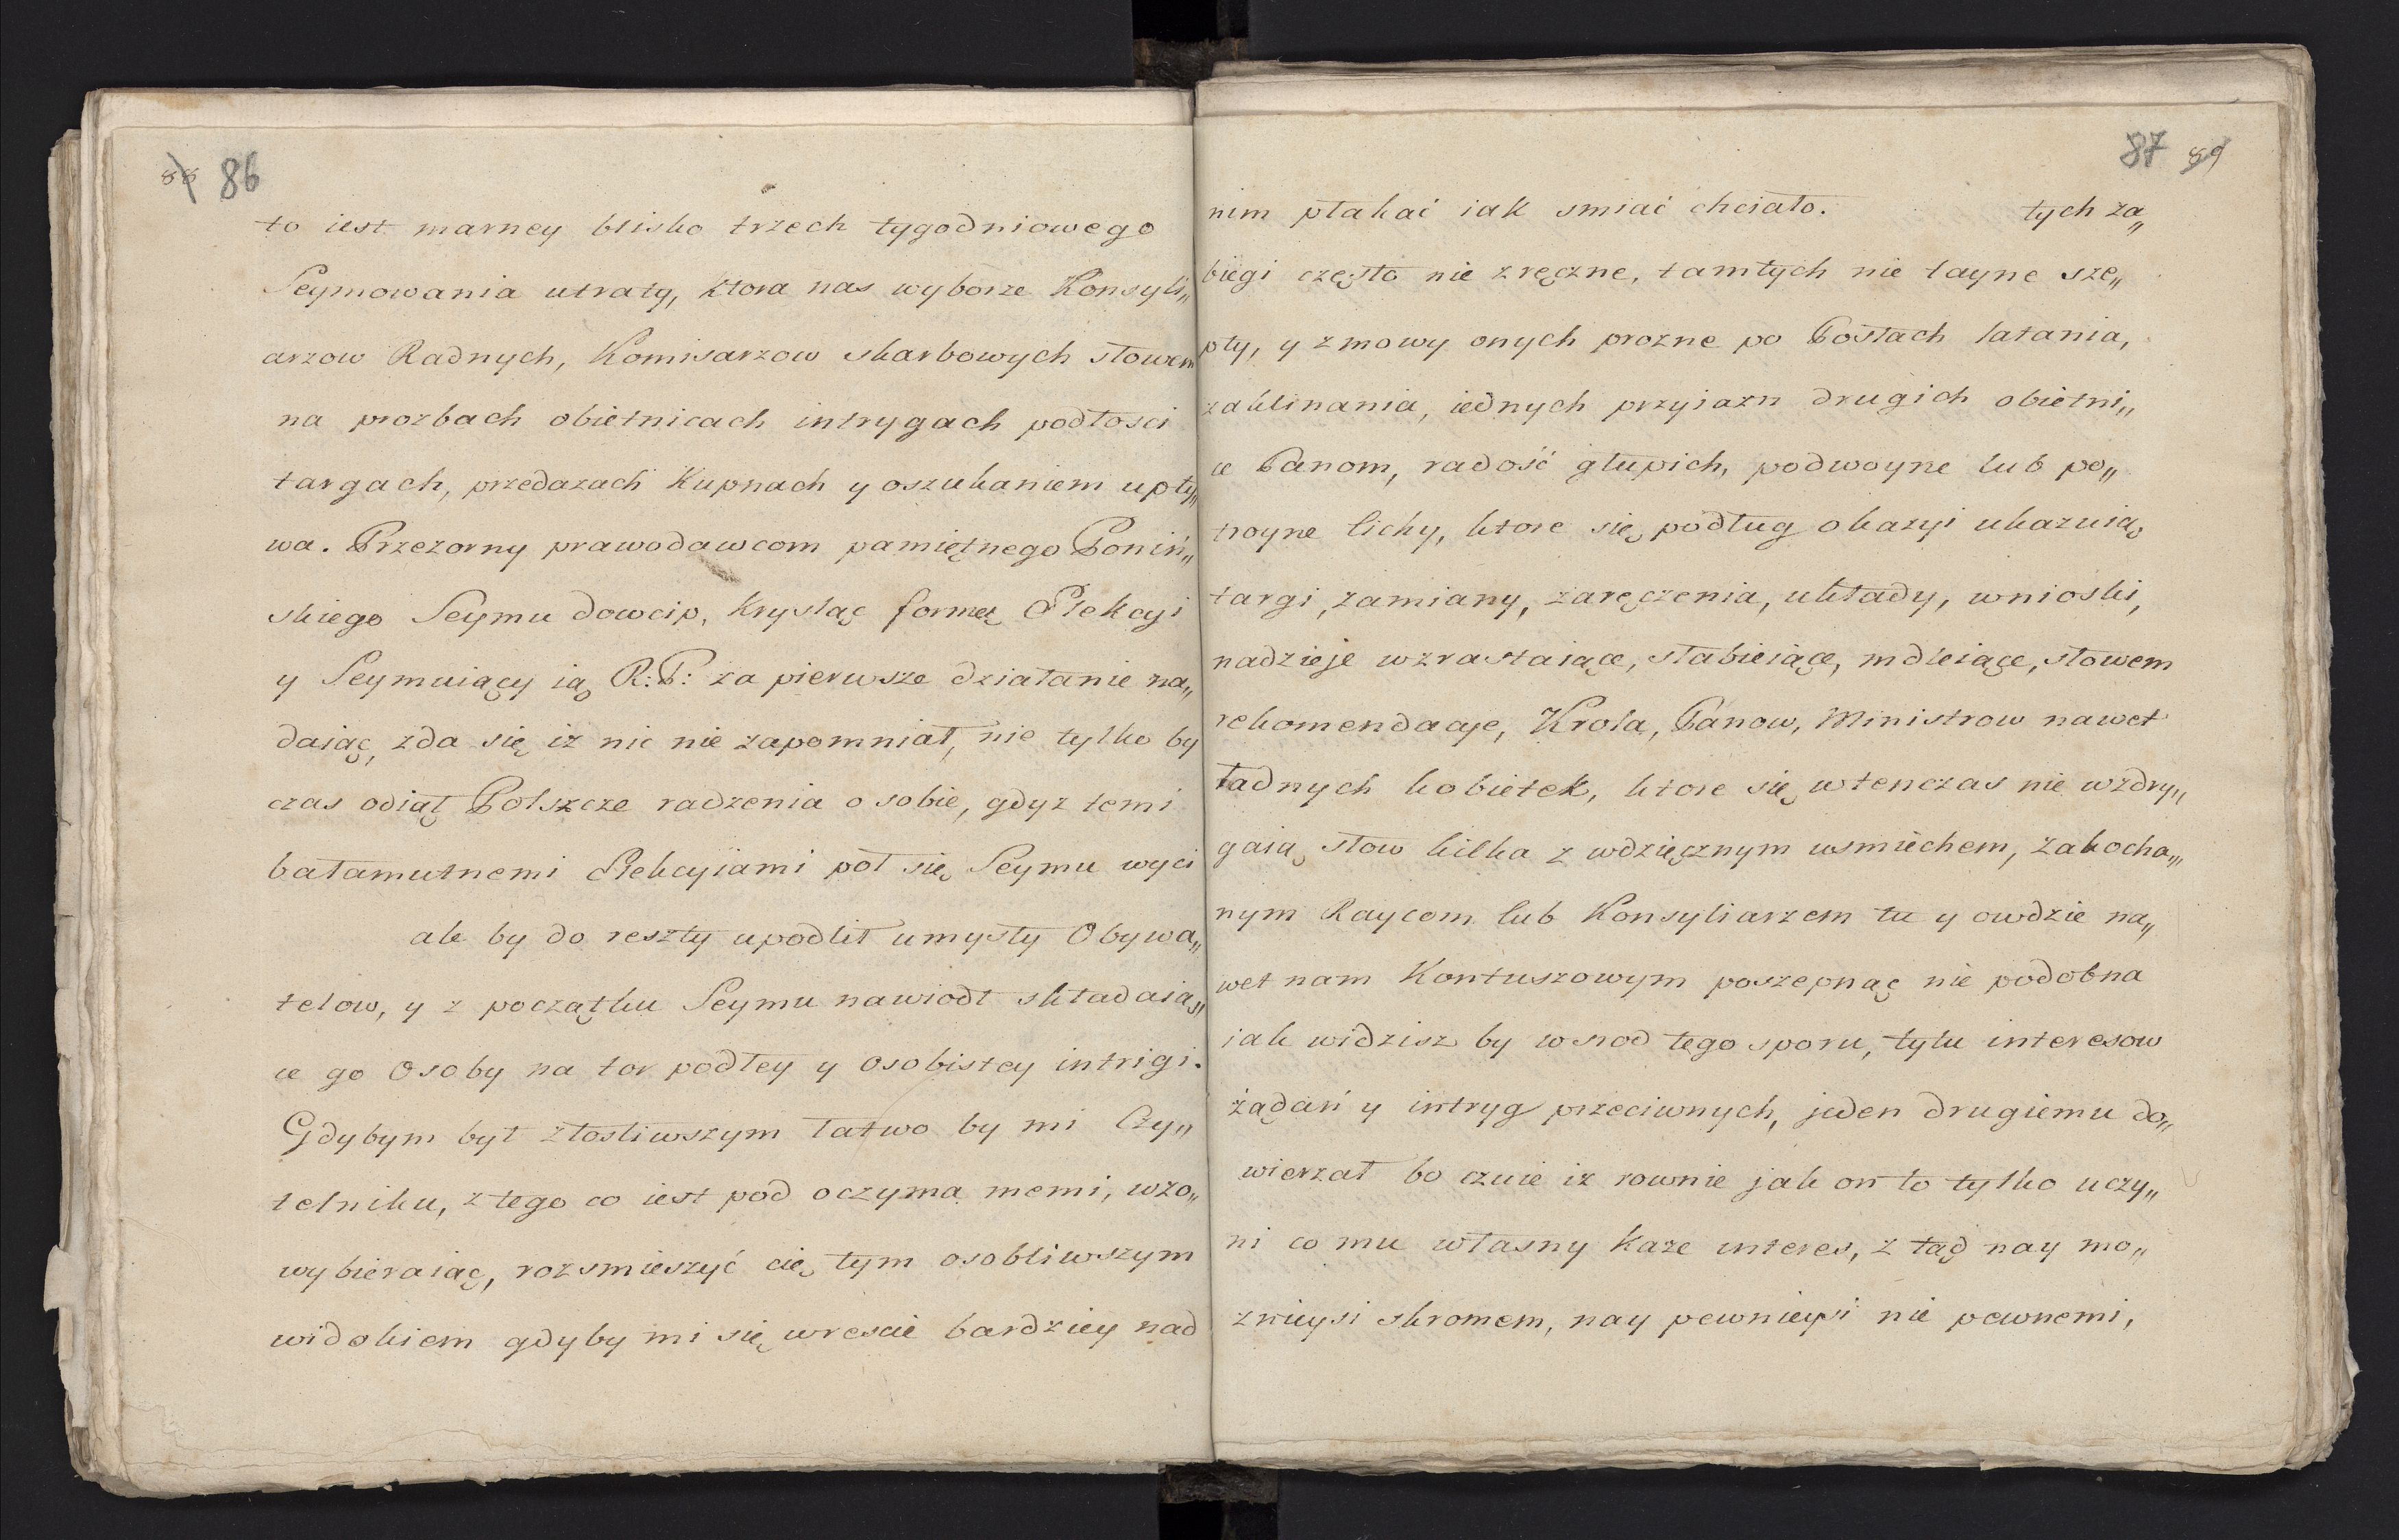 88 86
to iest marney blisko trzech tygodniowego
Seymowania utraty, ktora nas wyborze Konsyli„
arzow Radnych, Komisarzow skarbowych słowem
na prozbach obietnicach intrygach podłosci
targach, przedazach Kupnach y oszukaniem upły„
wa. Przezorny prawodawcom pamiętnego Poniń„
skiego Seymu dowcip, krysląc formę Elekcyi
y Seymuiący ią R: P: za pierwsze działanie na„
daiąc, zda się iz nic nie zapomniał, nie tylko by
czas odiął Polszcze radzenia o sobie, gdyz temi
bałamutnemi Elekcyiami poł się Seymu wyci
ale by do reszty upodlił umysły Obywa„
telow, y z początku Seymu nawiodł składaią„
ce go Osoby na tor podłey y osobistey intrigi.
Gdybym był złosliwszym łatwo by mi Czy„
telniku, z tego co iest pod oczyma memi, wzo„
wybieraiąc, rozsmieszyć cię tym osobliwszym
widokiem gdyby mi się wrescie bardziey nad
87 89
nim płakać iak smiać chciało. tych za„
biegi często nie zręczne, tamtych nie tayne sze„
pty, y zmowy onych prozne po Posłach latania,
zaklinania, iednych przyiazn drugich obietni„
ce Panom, radość głupich, podwoyne lub po„
troyne lichy, ktore się podług okazyi ukazuią
targi, zamiany, zaręczenia, układy, wnioski,
nadzieje wzrastaiące, słabieiące, mdleiące, słowem
rekomendacje, Krola, Panow, Ministrow nawet
ładnych kobietek, ktore się wtenczas nie wzdry„
gaią słow kilka z wdzięcznym usmiechem, zakocha„
nym Raycom lub Konsyliarzem tu y owdzie na„
wet nam Kontuszowym poszepnąc nie podobna
iak widzisz by wsrod tego sporu, tylu interesow
żądań y intryg przeciwnych, jeden drugiemu do„
wierzał bo czuie iz rownie jak on to tylko uczy„
ni co mu własny kaze interes, z tąd nay mo„
znieysi skromem, nay pewnieysi nie pewnemi,